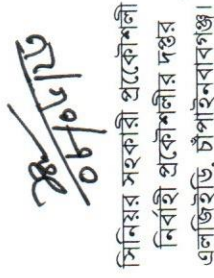 সিনিয়র সহকারী প্রকৌশলী
নির্বাহী প্রকৌশলীর দপ্তর
এলজিইডি, চাঁপাইনবাবগঞ্জ।